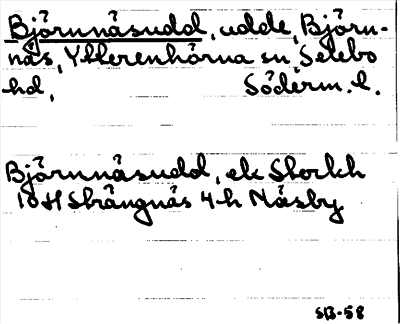 Björnnäsudd, udde, Björn-
näs, Ytterenhörna sn, Selebo
hd, Söderm. l.
Björnnäsudd, ek Storkh
10H Strängnäs 4-h Näsby
SB-58